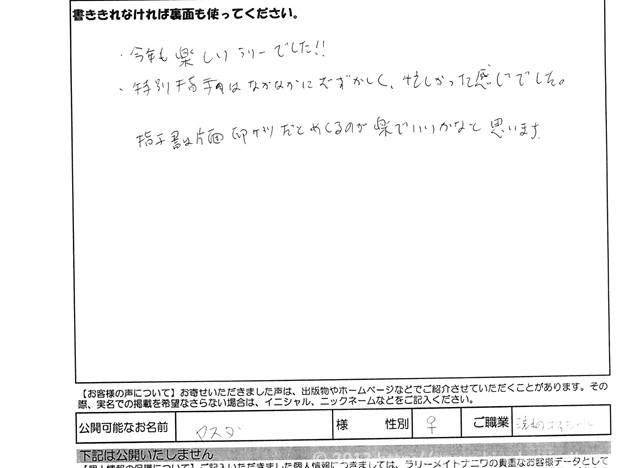 書ききれなければ裏面も使ってください。
・今年も楽しいラリーでした!!
・特別指示はなかなかにむずかしく、忙しかった感じでした。
指示書は片面印サツだとめくるのが楽でいいかなと思います
【お客様の声について】お寄せいただきました声は、出版物やホームページなどでご紹介させていただくことがあります。その
際、実名での掲載を希望なさらない場合は、イニシャル、ニックネームなどをご記入ください。
公開可能なお名前 マスダ 様 性別 ♀ ご職業
下記は公開いたしません
【個人情報の保護について】ご記入いただきました個人情報につきましては、ラリーメイトナニワの貴重なお客様データとして